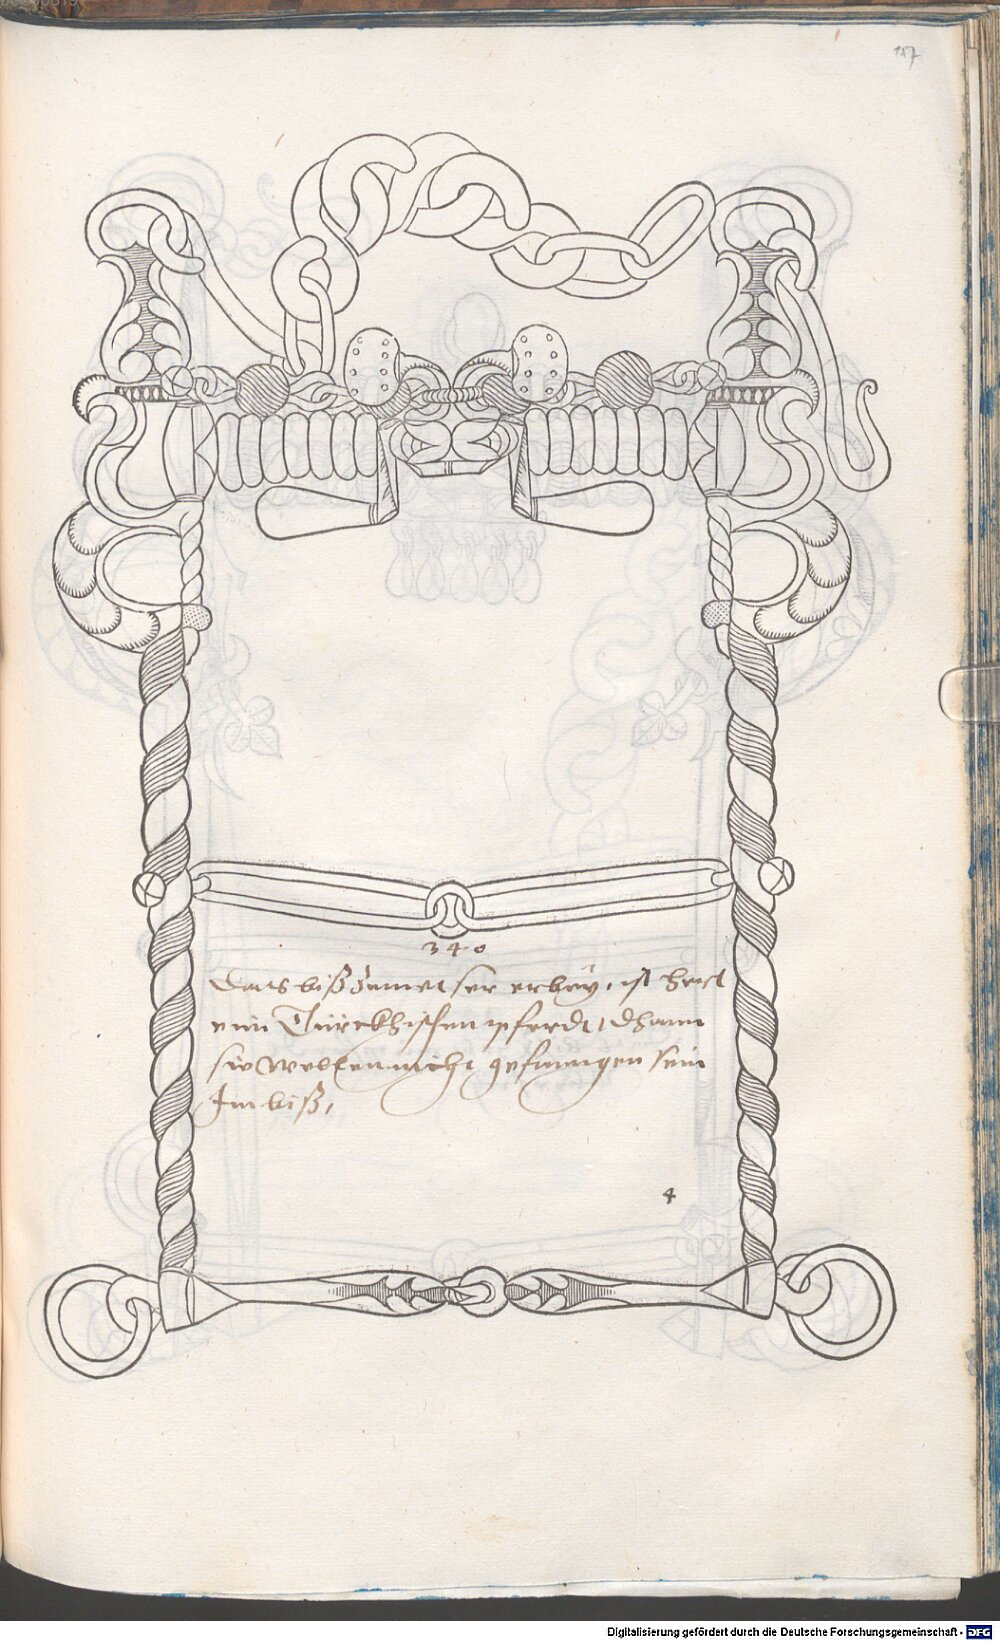 187
340
Das biß Zamet ser erbey, ist Herst
eim Türckhischen pferdt, dhann
sie wellen nicht gefanngen sein
Im biß,
4
Digitalisierung gefördert durch die Deutsche Forschungsgemeinschaft - DFG